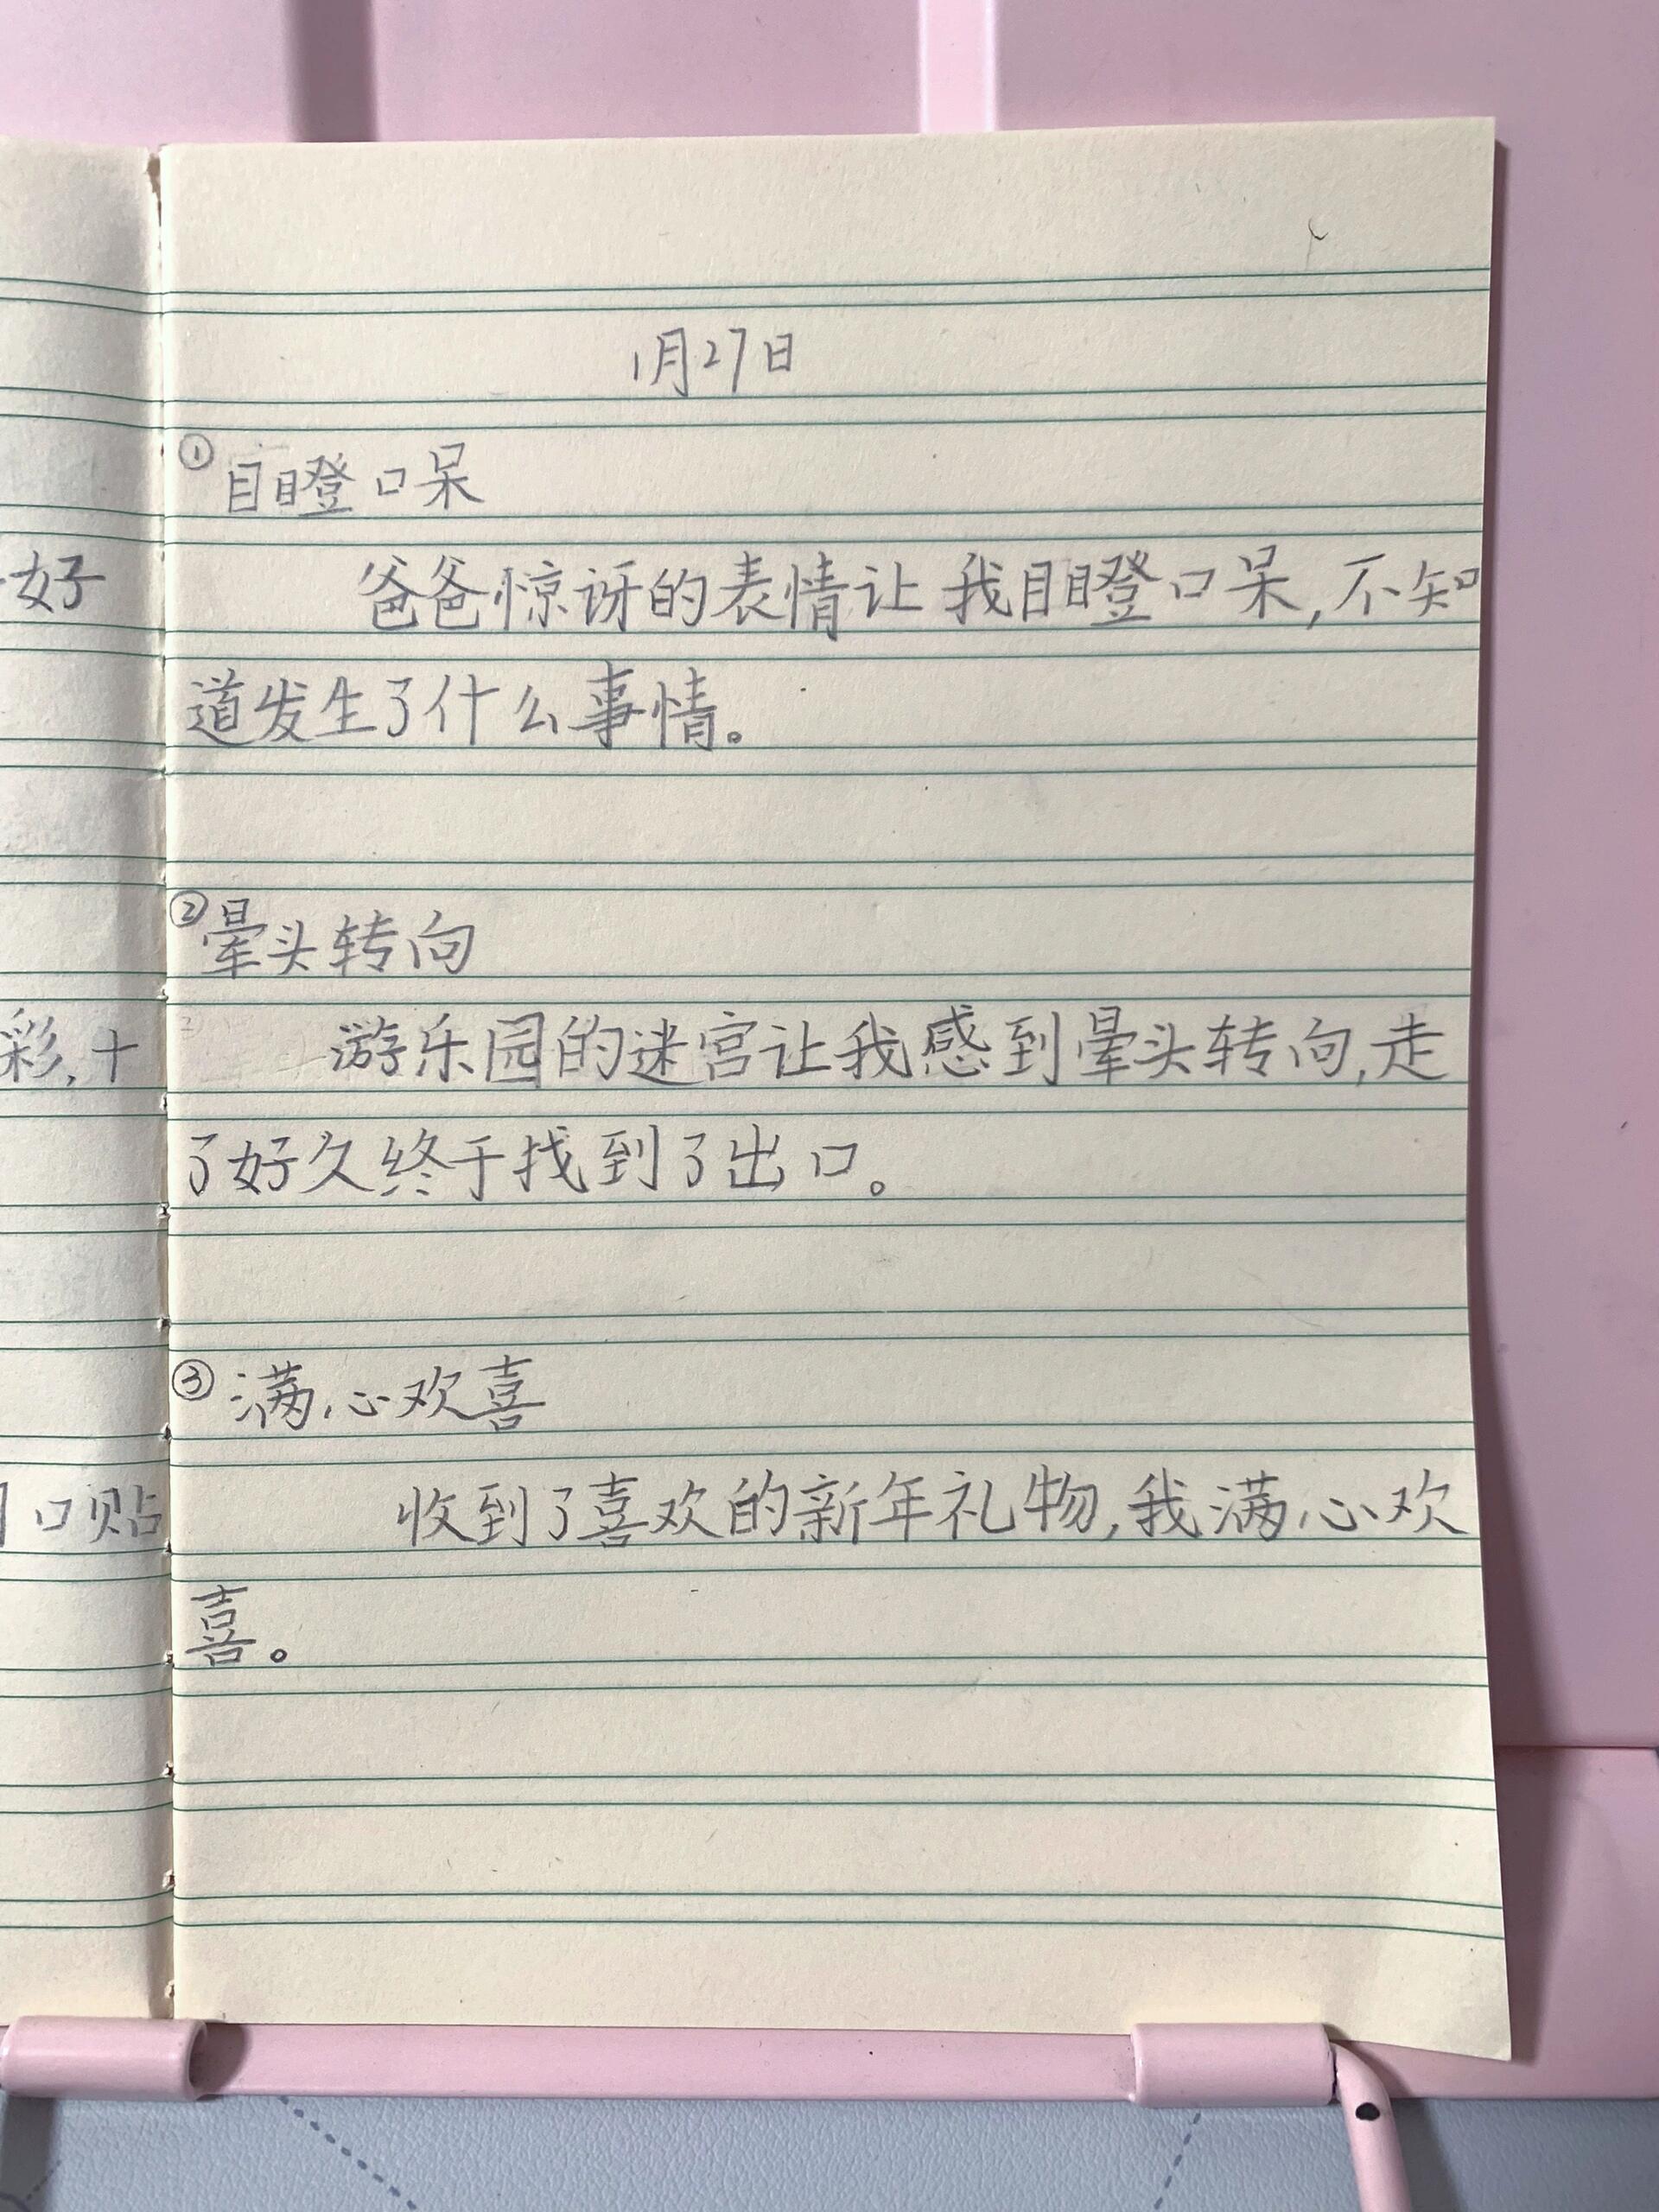 1月27日
①目瞪口呆
爸爸惊讶的表情让我目瞪口呆,不知
道发生了什么事情。
②晕头转向
游乐园的迷宫让我感到晕头转向,走
了好久终于找到了出口。
③满心欢喜
收到了喜欢的新年礼物,我满心欢
喜。
好
彩,十
口贴